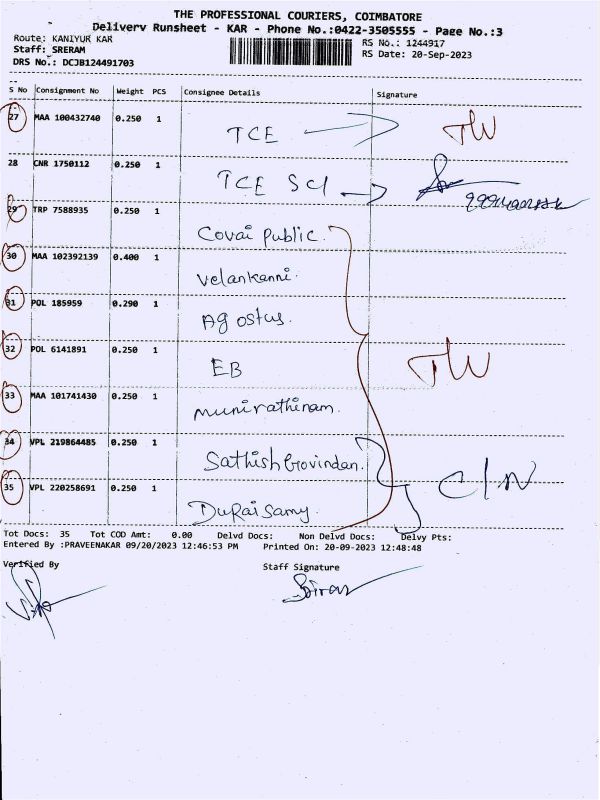 THE PROFESSIONAL COURIERS, COIMBATORE
Delivery Runsheet - KAR - Phone No.:0422-3505555 - Page No.:3
Route: KANIYUR KAR
RS No.: 1244917
Staff: SRERAM
RS Date: 20-Sep-2023
DRS No.: DCJB124491703
S No Consignment No Weight PCS Consignee Details Signature
27 MAA 100432740 0.250 1 TCE TW
28 CNR 1750112 0.250 1 TCE SCI
29 TRP 7588935 0.250 1 Covai Public.
30 MAA 102392139 0.400 1 Velankanni.
31 POL 185959 0.290 1 Agostus.
32 POL 6141891 0.250 1 EB TW
33 MAA 101741430 0.250 1 Munirathinam.
34 VPL 219864485 0.250 1 Sathish Govindan. C/N
35 VPL 220258691 0.250 1 Duraisamy.
Tot Docs: 35 Tot COD Amt: 0.00 Delvd Docs: Non Delvd Docs: Delvy Pts:
Entered By :PRAVEENAKAR 09/20/2023 12:46:53 PM Printed On: 20-09-2023 12:48:48
Verified By Staff Signature